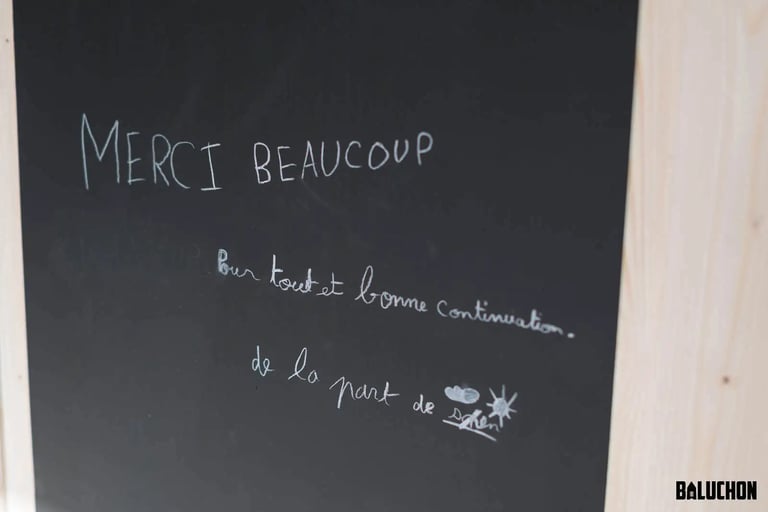 MERCI BEAUCOUP
Pour tout et bonne continuation.
de la part de
BALUCHON